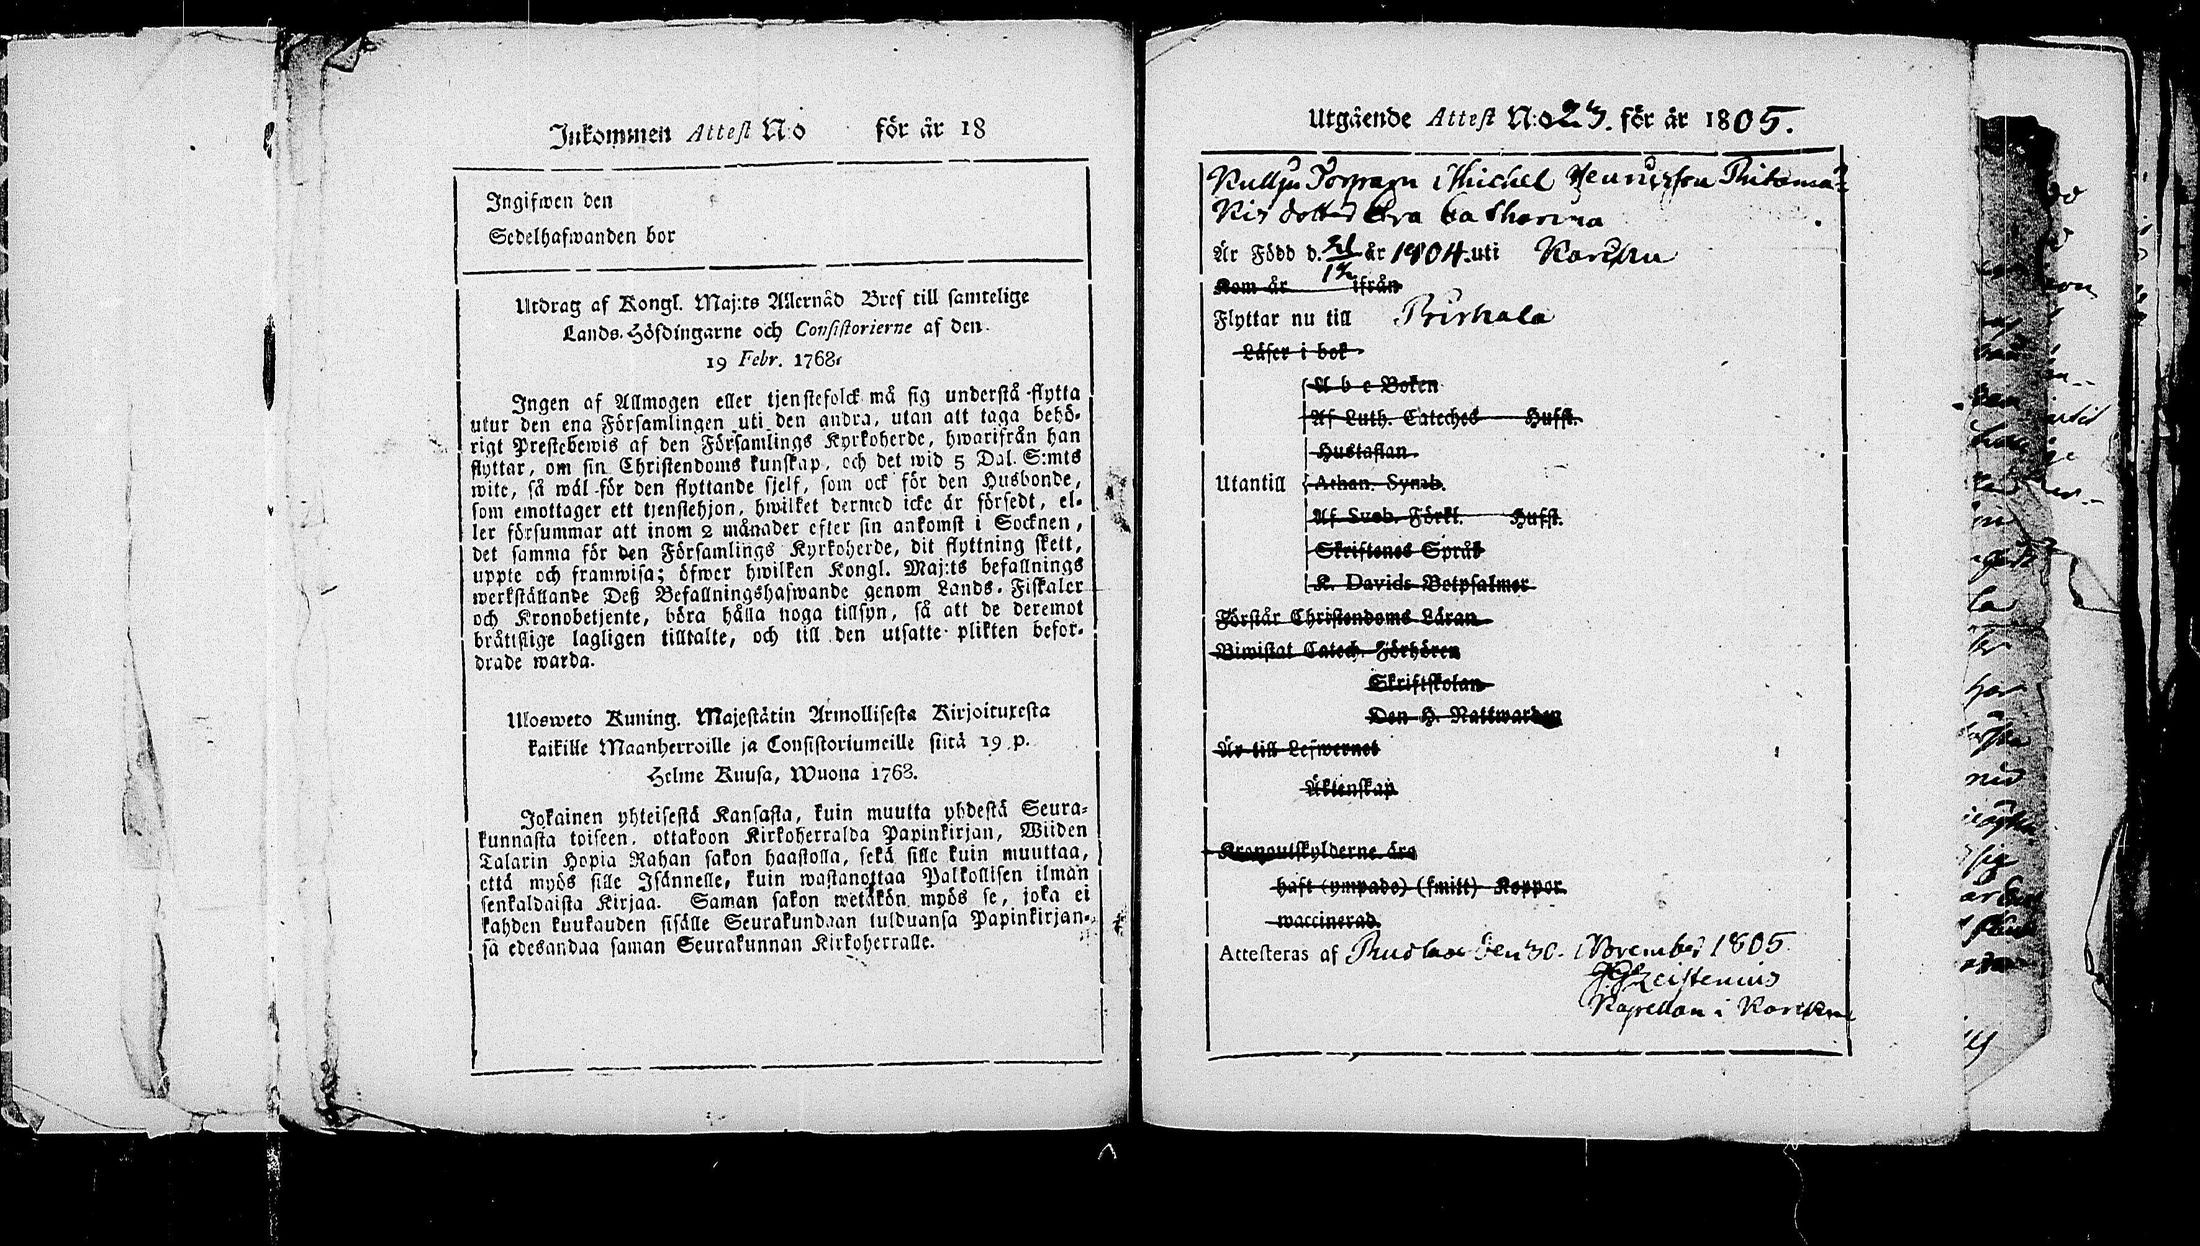 Inkommen Attest N:o för år 18
Ingifwen den
Sedelhafwanden bor
Utdrag af Kongl. Maj:ts Allernåd Bref till samtelige
Lands-Höfdingarne och Consistorierne af den
19 Febr. 1768.
Ingen af Allmogen eller tjenstefolck må sig understå flytta
utur den ena Församlingen uti den andra, utan att taga behö-
rigt Prestebewis af den Församlings Kyrkoherde, hwarifrån han
flyttar, om sin Christendoms kunskap, och det wid 5 Dal. S:mts
wite, så wäl för den flyttande sjelf, som ock för den Husbonde,
som emottager ett tjenstehjon, hwilket dermed icke är försedt, el-
ler försummar att inom 2 månader efter sin ankomst i Socknen,
det samma för den Församlings Kyrkoherde, dit flyttning skett,
uppte och framwisa; öfwer hwilken Kongl. Maj:ts befallnings
werkställande Deß Befallningshafwande genom Lands-Fiskaler
och Kronobetjente, böra hålla noga tillsyn, så att de deremot
bråttslige lagligen tilltalte, och till den utsatte plikten befor-
drade warda.
Ulosweto Kuning. Majestätin Armollisesta Kirjoituxesta
kaikille Maanherroille ja Consistoriumeille siitä 19 p.
Helme Kuusa, Wuona 1768.
Jokainen yhteisestä Kansasta, kuin muutta yhdestä Seura-
kunnasta toiseen, ottakoon Kirkoherralda Papinkirjan, Wiiden
Talarin Hopia Rahan sakon haastolla, sekä sille kuin muuttaa,
että myös sille Isännelle, kuin wastanottaa Palkollisen ilman
senkaldaista Kirjaa. Saman sakon wetäkön myös se, joka ei
kahden kuukauden sisälle Seurakundaan tulduansa Papinkirjan-
sa edesandaa saman Seurakunnan Kirkoherralle.
Utgående Attest N:o 23. för år 1805.
Torparn Michel Henricsson
dotter Eva Catharina
Är Född d. 21/12 år 1804 uti Karkku
Kom år ifrån
Flyttar nu till Birkala
Läser i bok
A b c Boken
Af Luth. Cateches Hufst.
Hustaflan
Utantill Athan. Symb.
Af Sveb. Förkl. Hufst.
Skriftenes Språk
K. Davids Botpsalmer
Förstår Christendoms Läran
Biwistat Catech. Förhören
Skriftskolan
Den H. Nattwarden
Är till Lefwernet
Äktenskap
Kronoutskylderne äro
haft (ympade) (smitt) Koppor
waccinerad
Attesteras af den 30. November 1805.
Kapellan i Karkku